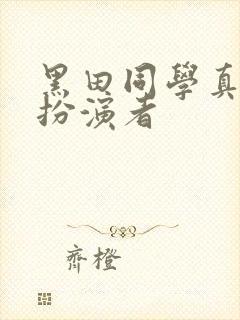 黑田同學真
扮演者
齊橙